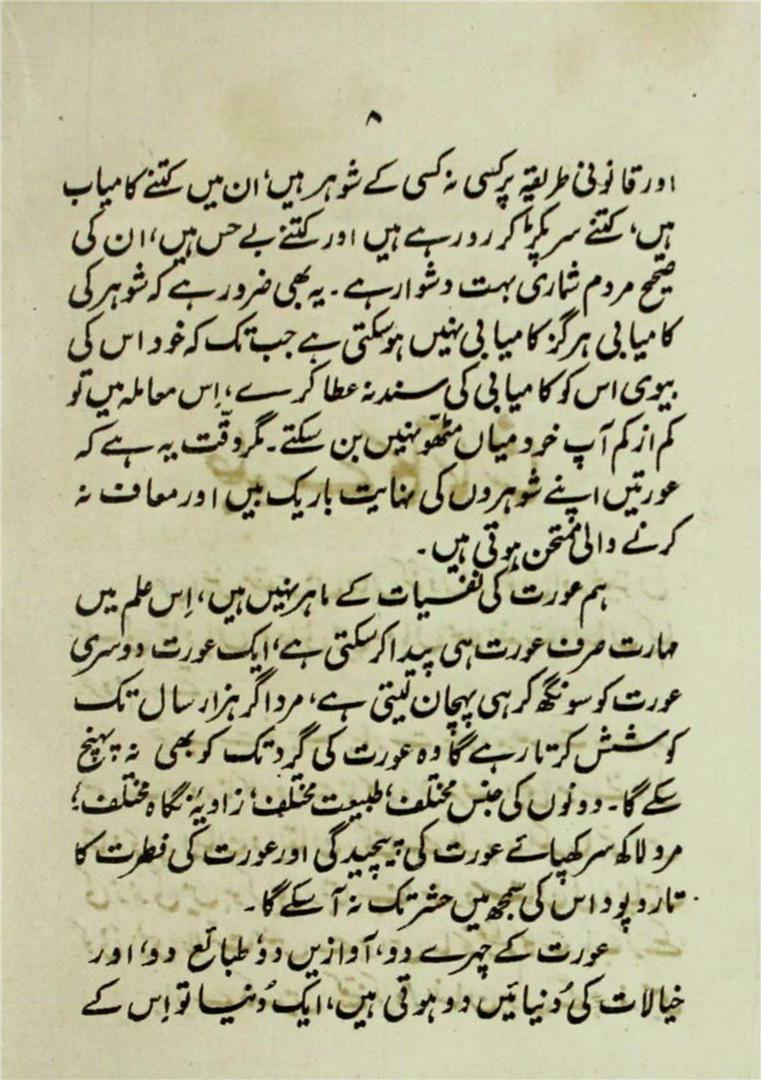 ۸
اور قانونی طریقہ پر کسی نہ کسی کے شوہر ہیں، ان میں کتنے کامیاب
ہیں، کتنے سر پکڑ کر رو رہے ہیں اور کتنے بے حس ہیں، ان کی
صحیح مردم شماری بہت دشوار ہے۔ یہ بھی ضرور ہے کہ شوہر کی
کامیابی ہرگز کامیابی نہیں ہوسکتی ہے جب تک کہ خود اس کی
بیوی اس کو کامیابی کی سند نہ عطا کرے، اِس معاملہ میں تو
کم از کم آپ خود میاں مٹھو نہیں بن سکتے۔ مگر دقّت یہ ہے کہ
عورتیں اپنے شوہروں کی نہایت باریک بیں اور معاف نہ
کرنے والی ممتحن ہوتی ہیں۔
ہم عورت کی نفسیات کے ماہر نہیں ہیں، اِس علم میں
مہارت صرف عورت ہی پیدا کرسکتی ہے، ایک عورت دوسری
عورت کو سونگھ کر ہی پہچان لیتی ہے، مرد اگر ہزار سال تک
کوشش کرتا رہے گا وہ عورت کی گرد تک کو بھی نہ پہنچ
سکے گا۔ دونوں کی جنس مختلف، طبیعت مختلف، زاویۂ نگاہ مختلف،
مرد لاکھ سر کھپائے عورت کی پیچیدگی اور عورت کی فطرت کا
تار و پود اس کی سمجھ میں حشر تک نہ آ سکے گا۔
عورت کے چہرے دو، آوازیں دو، طبائع دو، اور
خیالات کی دُنیائیں دو ہوتی ہیں، ایک دُنیا تو اِس کے